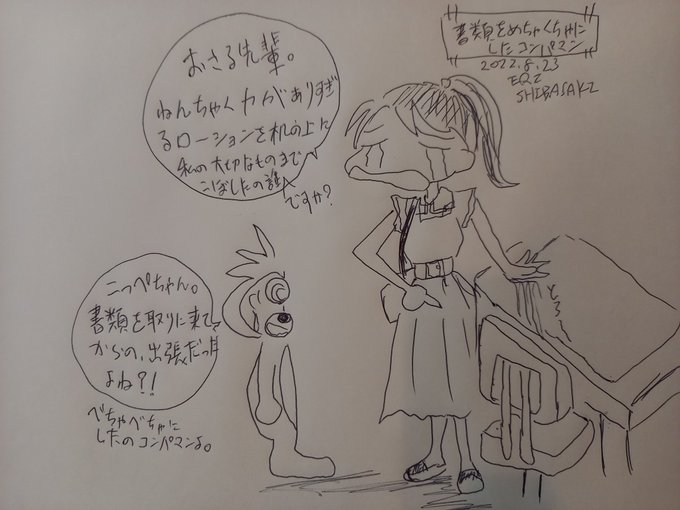 書類をめちゃくちゃに
したコンパマン
2022.8.23
EQZ
SHIBASAKI
おさる先輩。
ねんちゃく力がありすぎ
るローションを机の上に
私の大切なものまで
こぼしたの誰
ですか?
こっぺちゃん。
書類を取りに来て
からの、出張だっけ
よね?!
べちゃべちゃに
したのコンパマンよ。
とろ〜